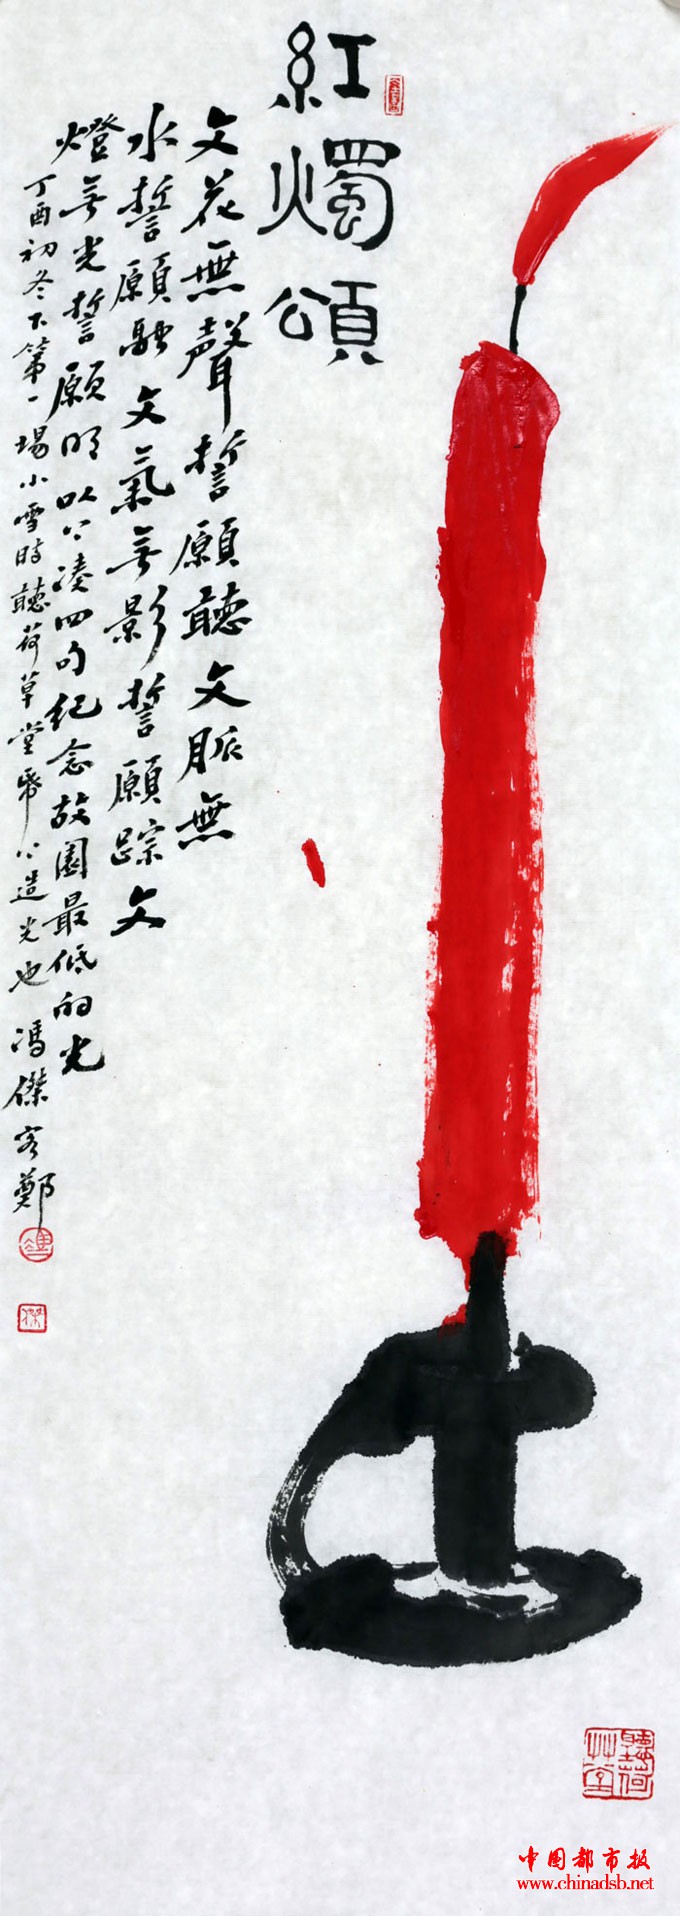 紅燭
頌
文花無聲誓願聽文脈無
水誓願融文氣無影誓願踪文
燈無光誓願明以上湊四句紀念故園最低的光
丁酉初冬下第一場小雪時聽荷草堂爲公造光也馮傑客鄭
聽荷草堂
中国都市报
www.chinadsb.net